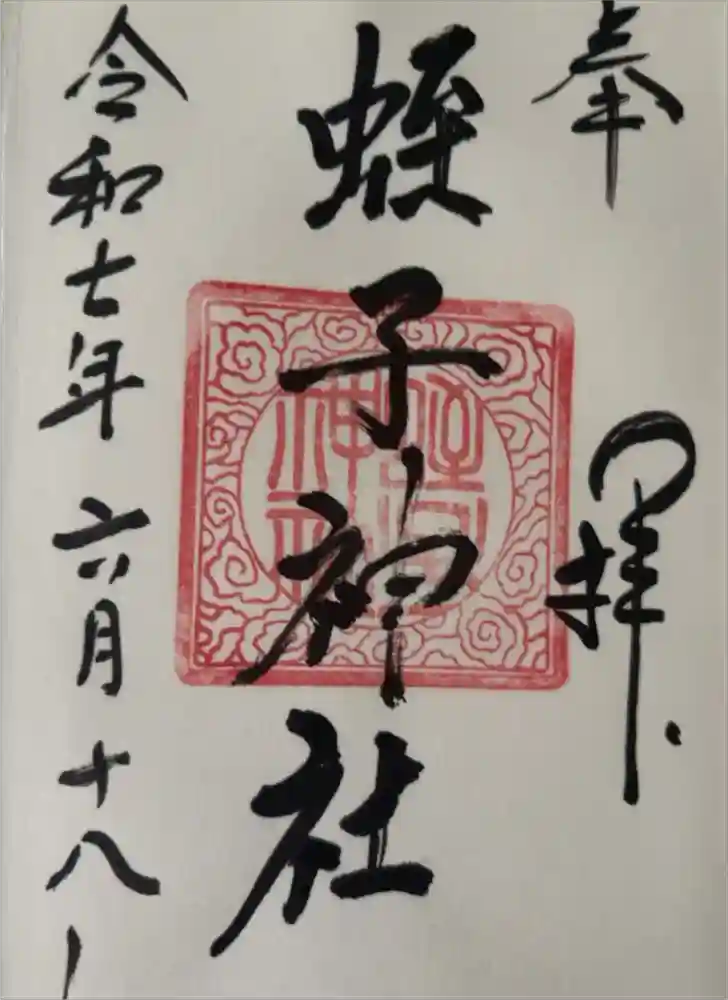 奉拝
蛭子神社
令和七年六月十八